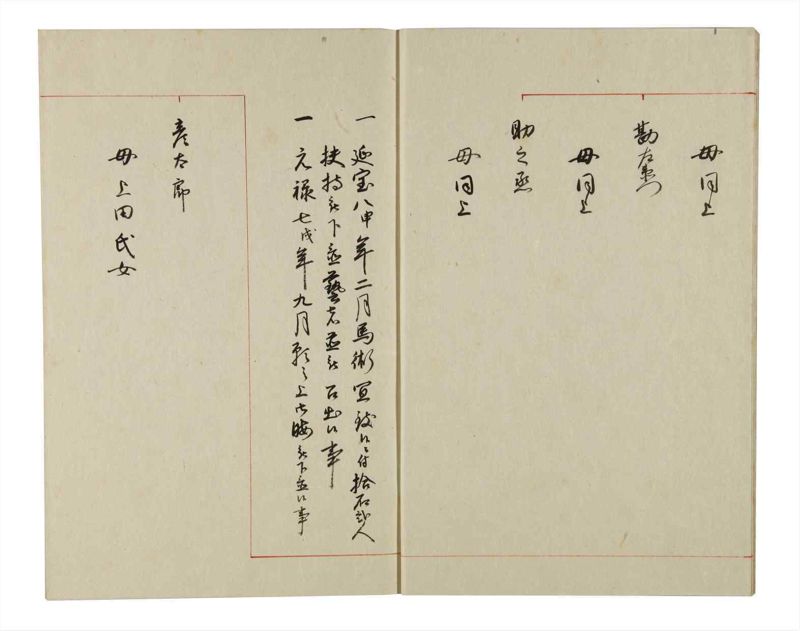 母同上
勘左衛門
母同上
助之丞
母同上
一 延宝八申年二月馬術宜致候ニ付拾石弐人
扶持被下並藝者並被召出候事
一 元禄七戌年九月願之上御暇被下並候事
彦太郎
母上田氏女